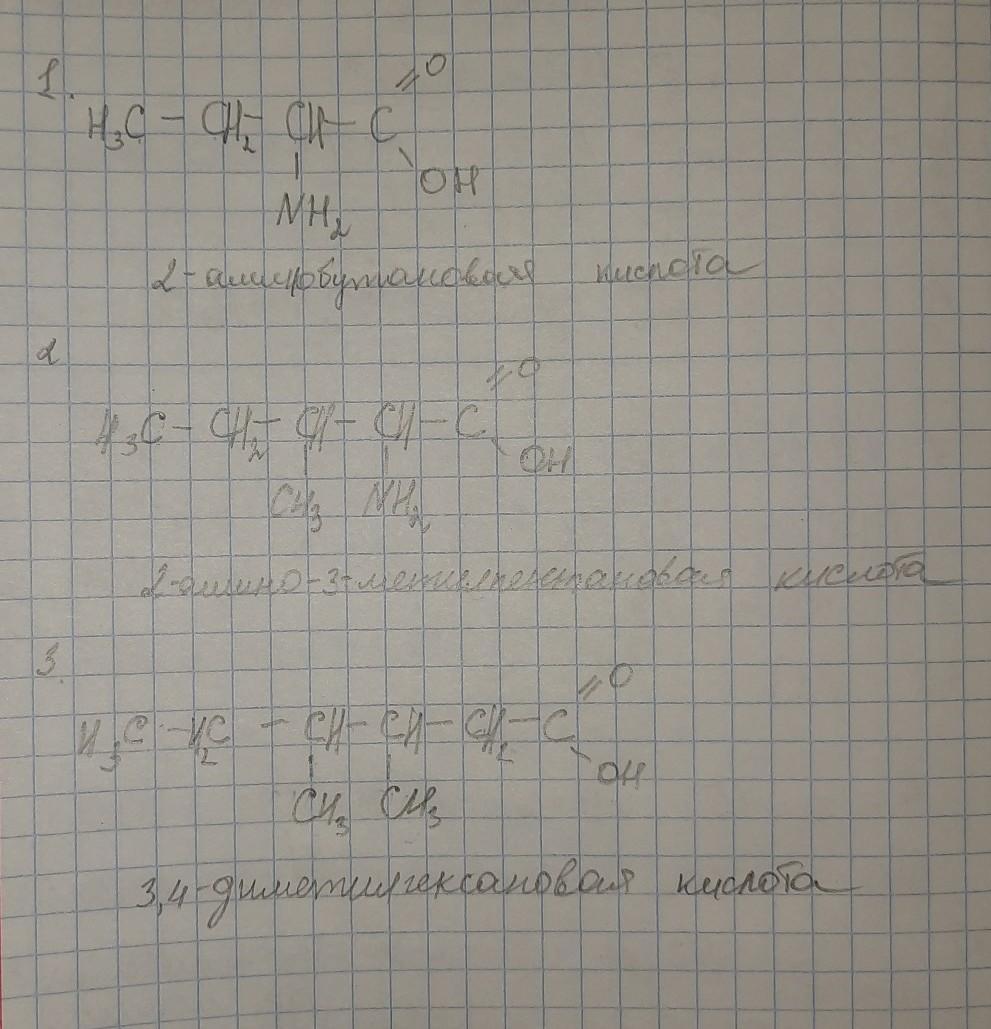 1.
O
H₃C - CH₂ - CH - C
OH
NH₂
2-аминобутановая кислота
2
O
H₃C - CH₂ - CH - CH - C
OH
CH₃ NH₂
2-амино-3-метилпентановая кислота
3.
O
H₃C - H₂C - CH - CH - CH₂ - C
OH
CH₃ CH₃
3,4-диметилгексановая кислота